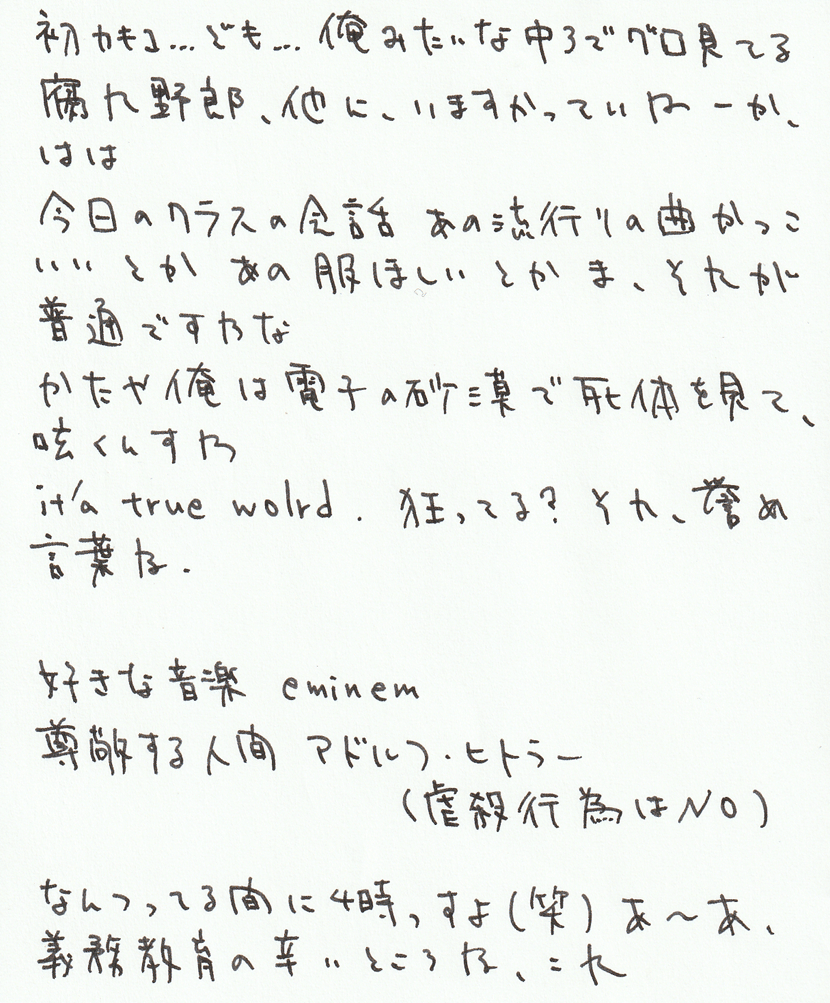 初カキコ…ども…俺みたいな中3でグロ見てる
腐れ野郎、他に、いますかっていねーか、
はは
今日のクラスの会話 あの流行りの曲かっこ
いい とか あの服ほしい とか ま、それが
普通ですわな
かたや俺は電子の砂漠で死体を見て、
呟くんすわ
it'a true wolrd. 狂ってる？それ、誉め
言葉ね.
好きな音楽 eminem
尊敬する人間 アドルフ・ヒトラー
(虐殺行為はNO)
なんつってる間に4時っすよ(笑) あ～あ、
義務教育の辛いところね、これ